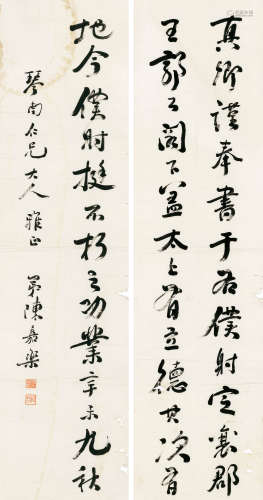 真卿謹奉書于右僕射定襄郡
王郭公閣下蓋太上有立德其次有
地今僕射挺不朽之功業辛未九秋
琴南仁兄大人雅正
弟陳嘉樂